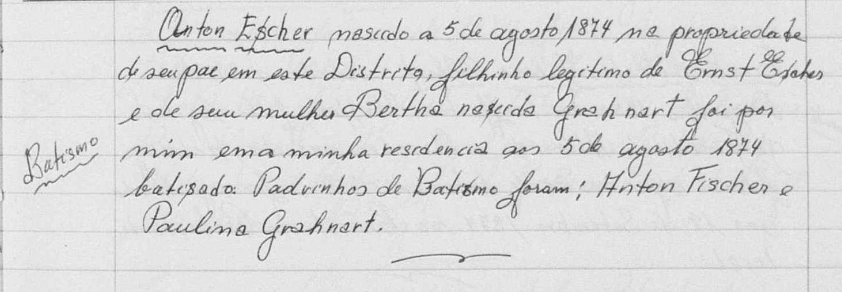 Anton Escher nascido a 5 de agosto 1874 na propriedade
de seu pae em este Distrito, filhinho legitimo de Ernst Escher
e de sua mulher Bertha nascida Grahnart foi por
mim em a minha residencia aos 5 de agosto 1874
Batismo
batisado. Padrinhos de Batismo foram: Anton Fischer e
Paulina Grahnart.